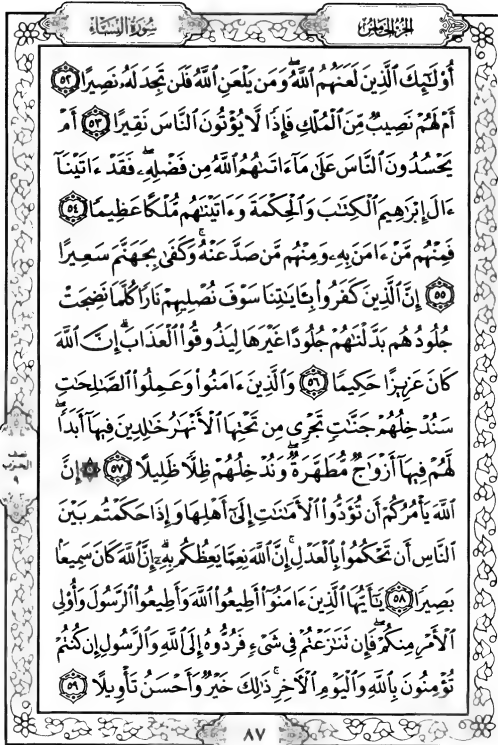 الجزء الخامس سورة النساء
أُوْلَٰٓئِكَ ٱلَّذِينَ لَعَنَهُمُ ٱللَّهُۖ وَمَن يَلْعَنِ ٱللَّهُ فَلَن تَجِدَ لَهُۥ نَصِيرًا ٥٢
أَمْ لَهُمْ نَصِيبٌ مِّنَ ٱلْمُلْكِ فَإِذًا لَّا يُؤْتُونَ ٱلنَّاسَ نَقِيرًا ٥٣ أَمْ
يَحْسُدُونَ ٱلنَّاسَ عَلَىٰ مَآ ءَاتَىٰهُمُ ٱللَّهُ مِن فَضْلِهِۦۖ فَقَدْ ءَاتَيْنَآ
ءَالَ إِبْرَٰهِيمَ ٱلْكِتَٰبَ وَٱلْحِكْمَةَ وَءَاتَيْنَٰهُم مُّلْكًا عَظِيمًا ٥٤
فَمِنْهُم مَّنْ ءَامَنَ بِهِۦ وَمِنْهُم مَّن صَدَّ عَنْهُۚ وَكَفَىٰ بِجَهَنَّمَ سَعِيرًا
٥٥ إِنَّ ٱلَّذِينَ كَفَرُوا۟ بِـَٔايَٰتِنَا سَوْفَ نُصْلِيهِمْ نَارًا كُلَّمَا نَضِجَتْ
جُلُودُهُم بَدَّلْنَٰهُمْ جُلُودًا غَيْرَهَا لِيَذُوقُوا۟ ٱلْعَذَابَۗ إِنَّ ٱللَّهَ
كَانَ عَزِيزًا حَكِيمًا ٥٦ وَٱلَّذِينَ ءَامَنُوا۟ وَعَمِلُوا۟ ٱلصَّٰلِحَٰتِ
سَنُدْخِلُهُمْ جَنَّٰتٍ تَجْرِى مِن تَحْتِهَا ٱلْأَنْهَٰرُ خَٰلِدِينَ فِيهَآ أَبَدًاۖ
لَّهُمْ فِيهَآ أَزْوَٰجٌ مُّطَهَّرَةٌۖ وَنُدْخِلُهُمْ ظِلًّا ظَلِيلًا ٥٧ ۞ إِنَّ
ٱللَّهَ يَأْمُرُكُمْ أَن تُؤَدُّوا۟ ٱلْأَمَٰنَٰتِ إِلَىٰٓ أَهْلِهَا وَإِذَا حَكَمْتُم بَيْنَ
ٱلنَّاسِ أَن تَحْكُمُوا۟ بِٱلْعَدْلِۚ إِنَّ ٱللَّهَ نِعِمَّا يَعِظُكُم بِهِۦٓۗ إِنَّ ٱللَّهَ كَانَ سَمِيعًۢا
بَصِيرًا ٥٨ يَٰٓأَيُّهَا ٱلَّذِينَ ءَامَنُوٓا۟ أَطِيعُوا۟ ٱللَّهَ وَأَطِيعُوا۟ ٱلرَّسُولَ وَأُو۟لِى
ٱلْأَمْرِ مِنكُمْۖ فَإِن تَنَٰزَعْتُمْ فِى شَىْءٍ فَرُدُّوهُ إِلَى ٱللَّهِ وَٱلرَّسُولِ إِن كُنتُمْ
تُؤْمِنُونَ بِٱللَّهِ وَٱلْيَوْمِ ٱلْءَاخِرِۚ ذَٰلِكَ خَيْرٌ وَأَحْسَنُ تَأْوِيلًا ٥٩
الحزب
٩
٨٧